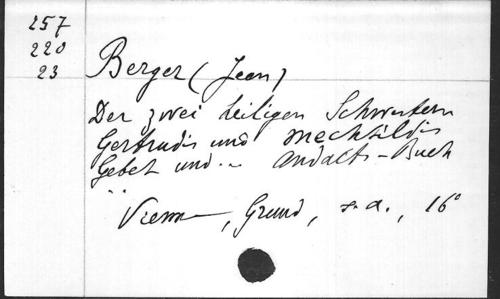 257
220
23
Berger (Jean)
Der zwei heiligen Schwestern
Gertrudis und Mechtildis
Gebet und .. Andachts-Buch
Vienne, Grund, s.d., 16°